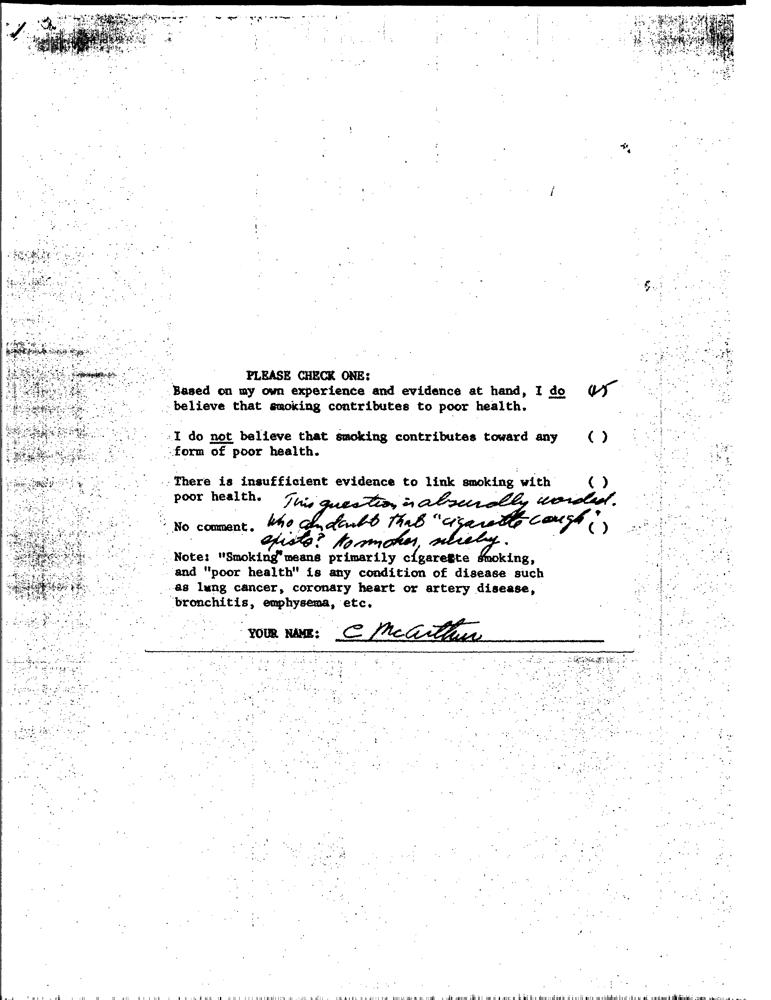 PLEASE CHECK ONE:
Based on my own experience and evidence at hand, I do (✓)
believe that smoking contributes to poor health.
I do not believe that smoking contributes toward any ( )
form of poor health.
There is insufficient evidence to link smoking with ( )
poor health. This question is absurdly worded.
No comment. Who can doubt that "cigarette cough" ( )
exists? No smoker, surely.
Note: "Smoking" means primarily cigarette smoking,
and "poor health" is any condition of disease such
as lung cancer, coronary heart or artery disease,
bronchitis, emphysema, etc.
YOUR NAME: C McArthur